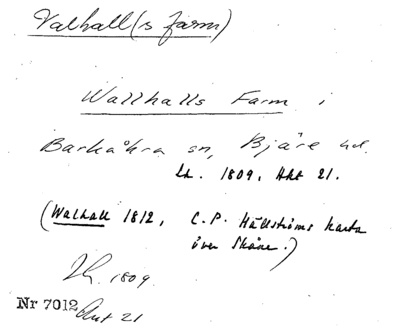 Valhall(s farm)
Wallhalls Farm i
Barkåkra sn, Bjäre hd.
Lh. 1809. Akt 21.
(Walhall 1812, C.P. Hällströms karta
över Skåne.)
Lh. 1809
Nr 7012 Akt 21